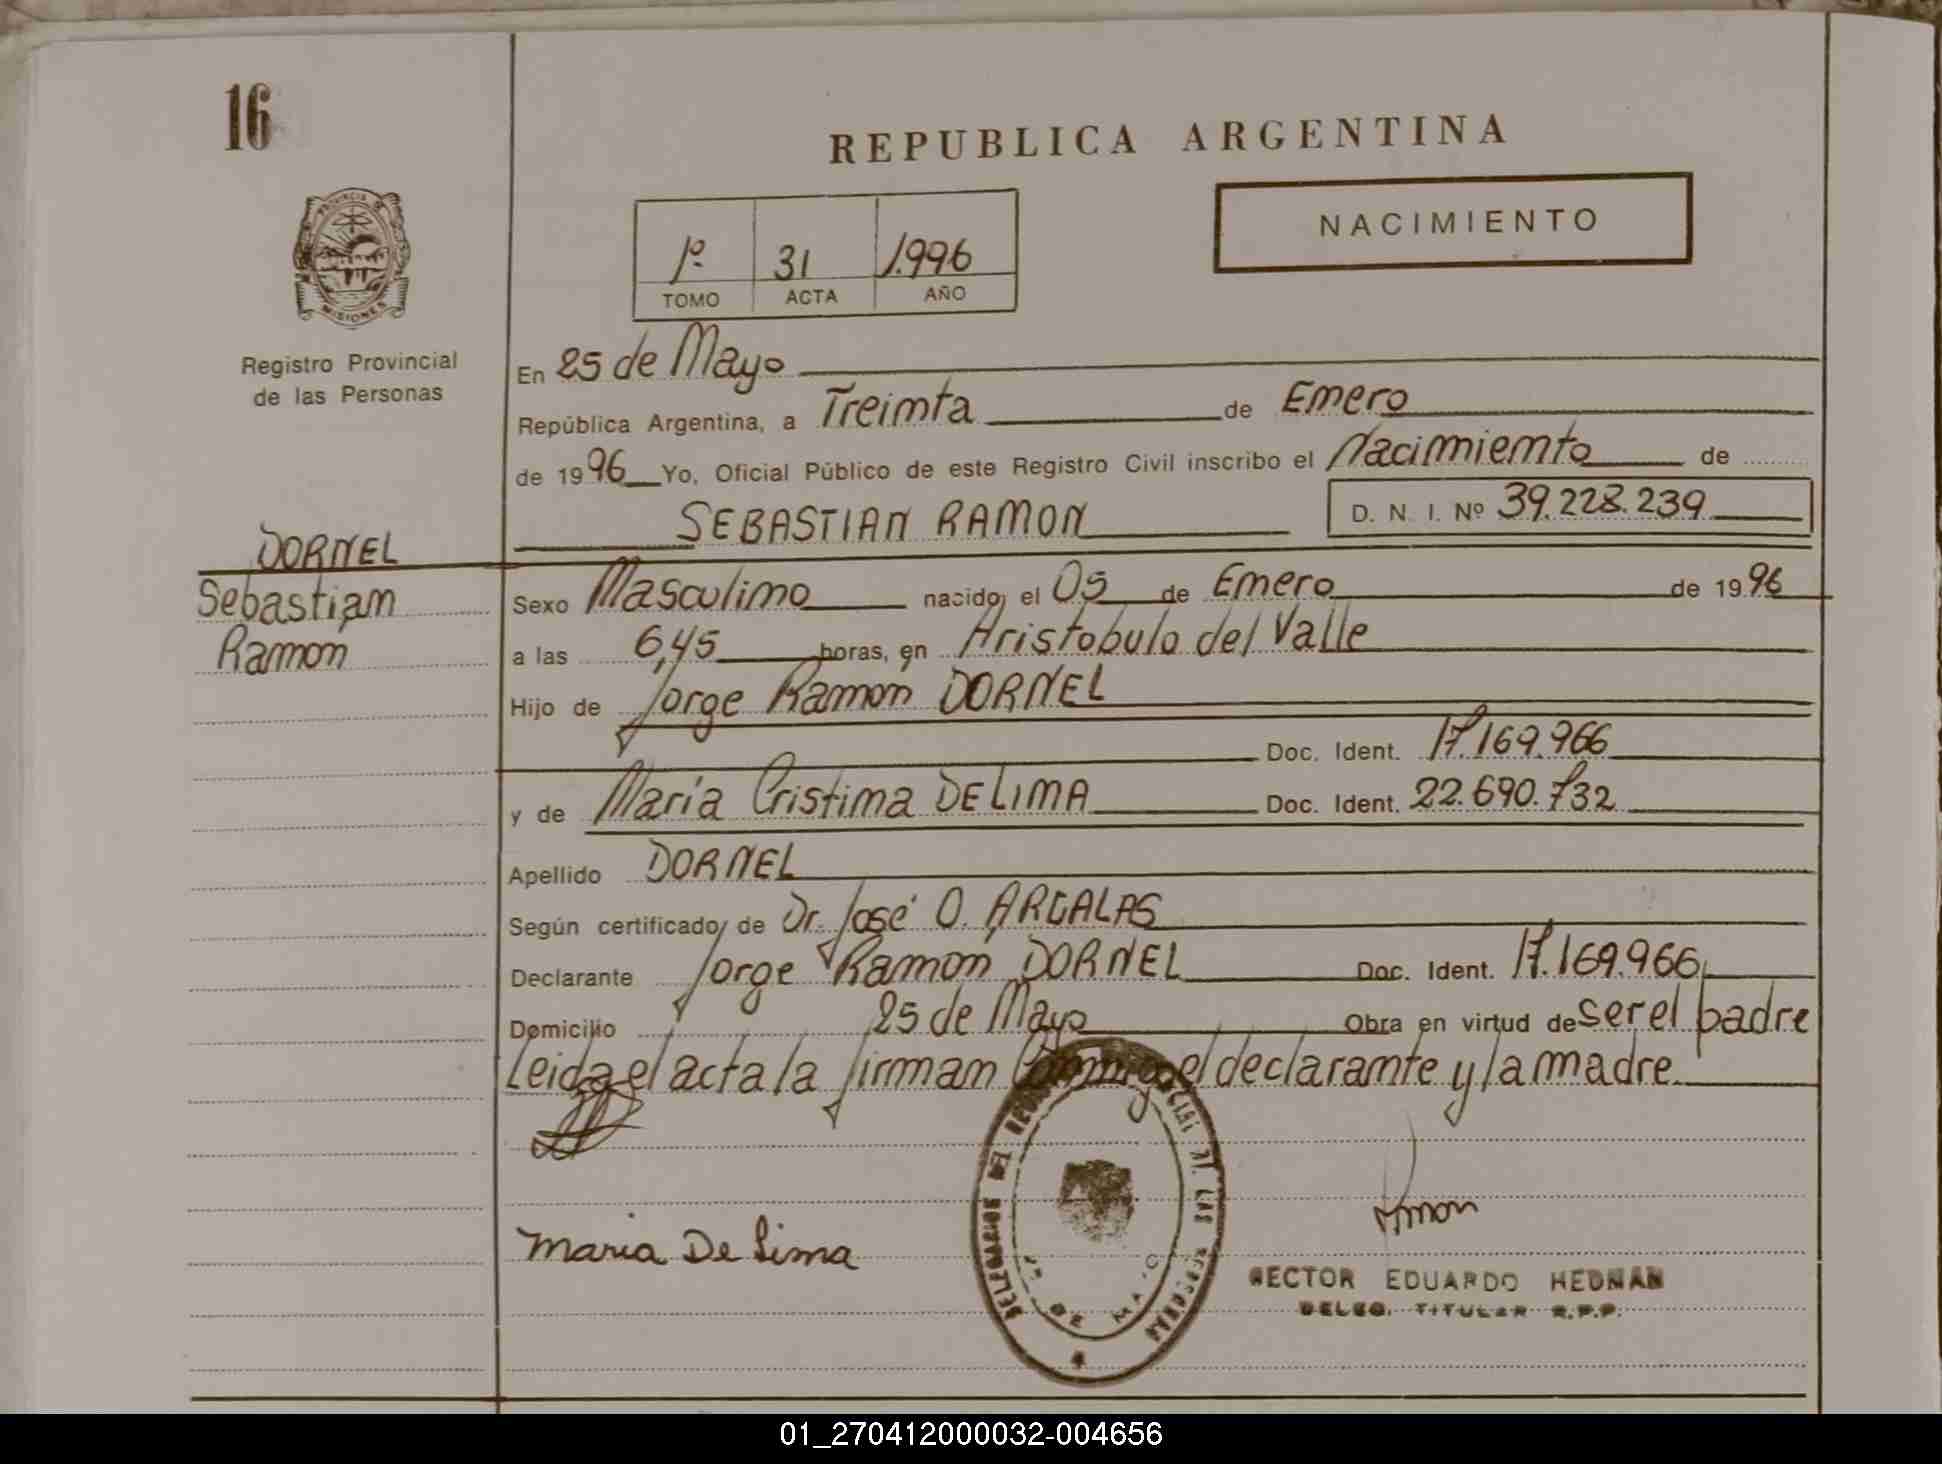 16
REPUBLICA ARGENTINA
NACIMIENTO
1º 31 1.996
TOMO ACTA AÑO
PROVINCIA DE
MISIONES
Registro Provincial
de las Personas
En 25 de Mayo
República Argentina, a Treinta de Enero
de 1996 Yo, Oficial Público de este Registro Civil inscribo el Nacimiento de
SEBASTIAN RAMON D. N. I. Nº 39.228.239
DORNEL
Sebastian
Ramón
Sexo Masculino nacido el 05 de Enero de 1996
a las 6,45 horas, en Aristobulo del Valle
Hijo de Jorge Ramón DORNEL
Doc. Ident. 17.169.966
y de María Cristina DE LIMA Doc. Ident. 22.690.732
Apellido DORNEL
Según certificado de Dr. José O. ARGALAS
Declarante Jorge Ramón DORNEL Doc. Ident. 17.169.966
Domicilio 25 de Mayo Obra en virtud de ser el padre
Leida el acta la firman Conmigo el declarante y la madre
maria De Lima
HECTOR EDUARDO HEDMAN
DELEG. TITULAR R.P.P.
01_270412000032-004656